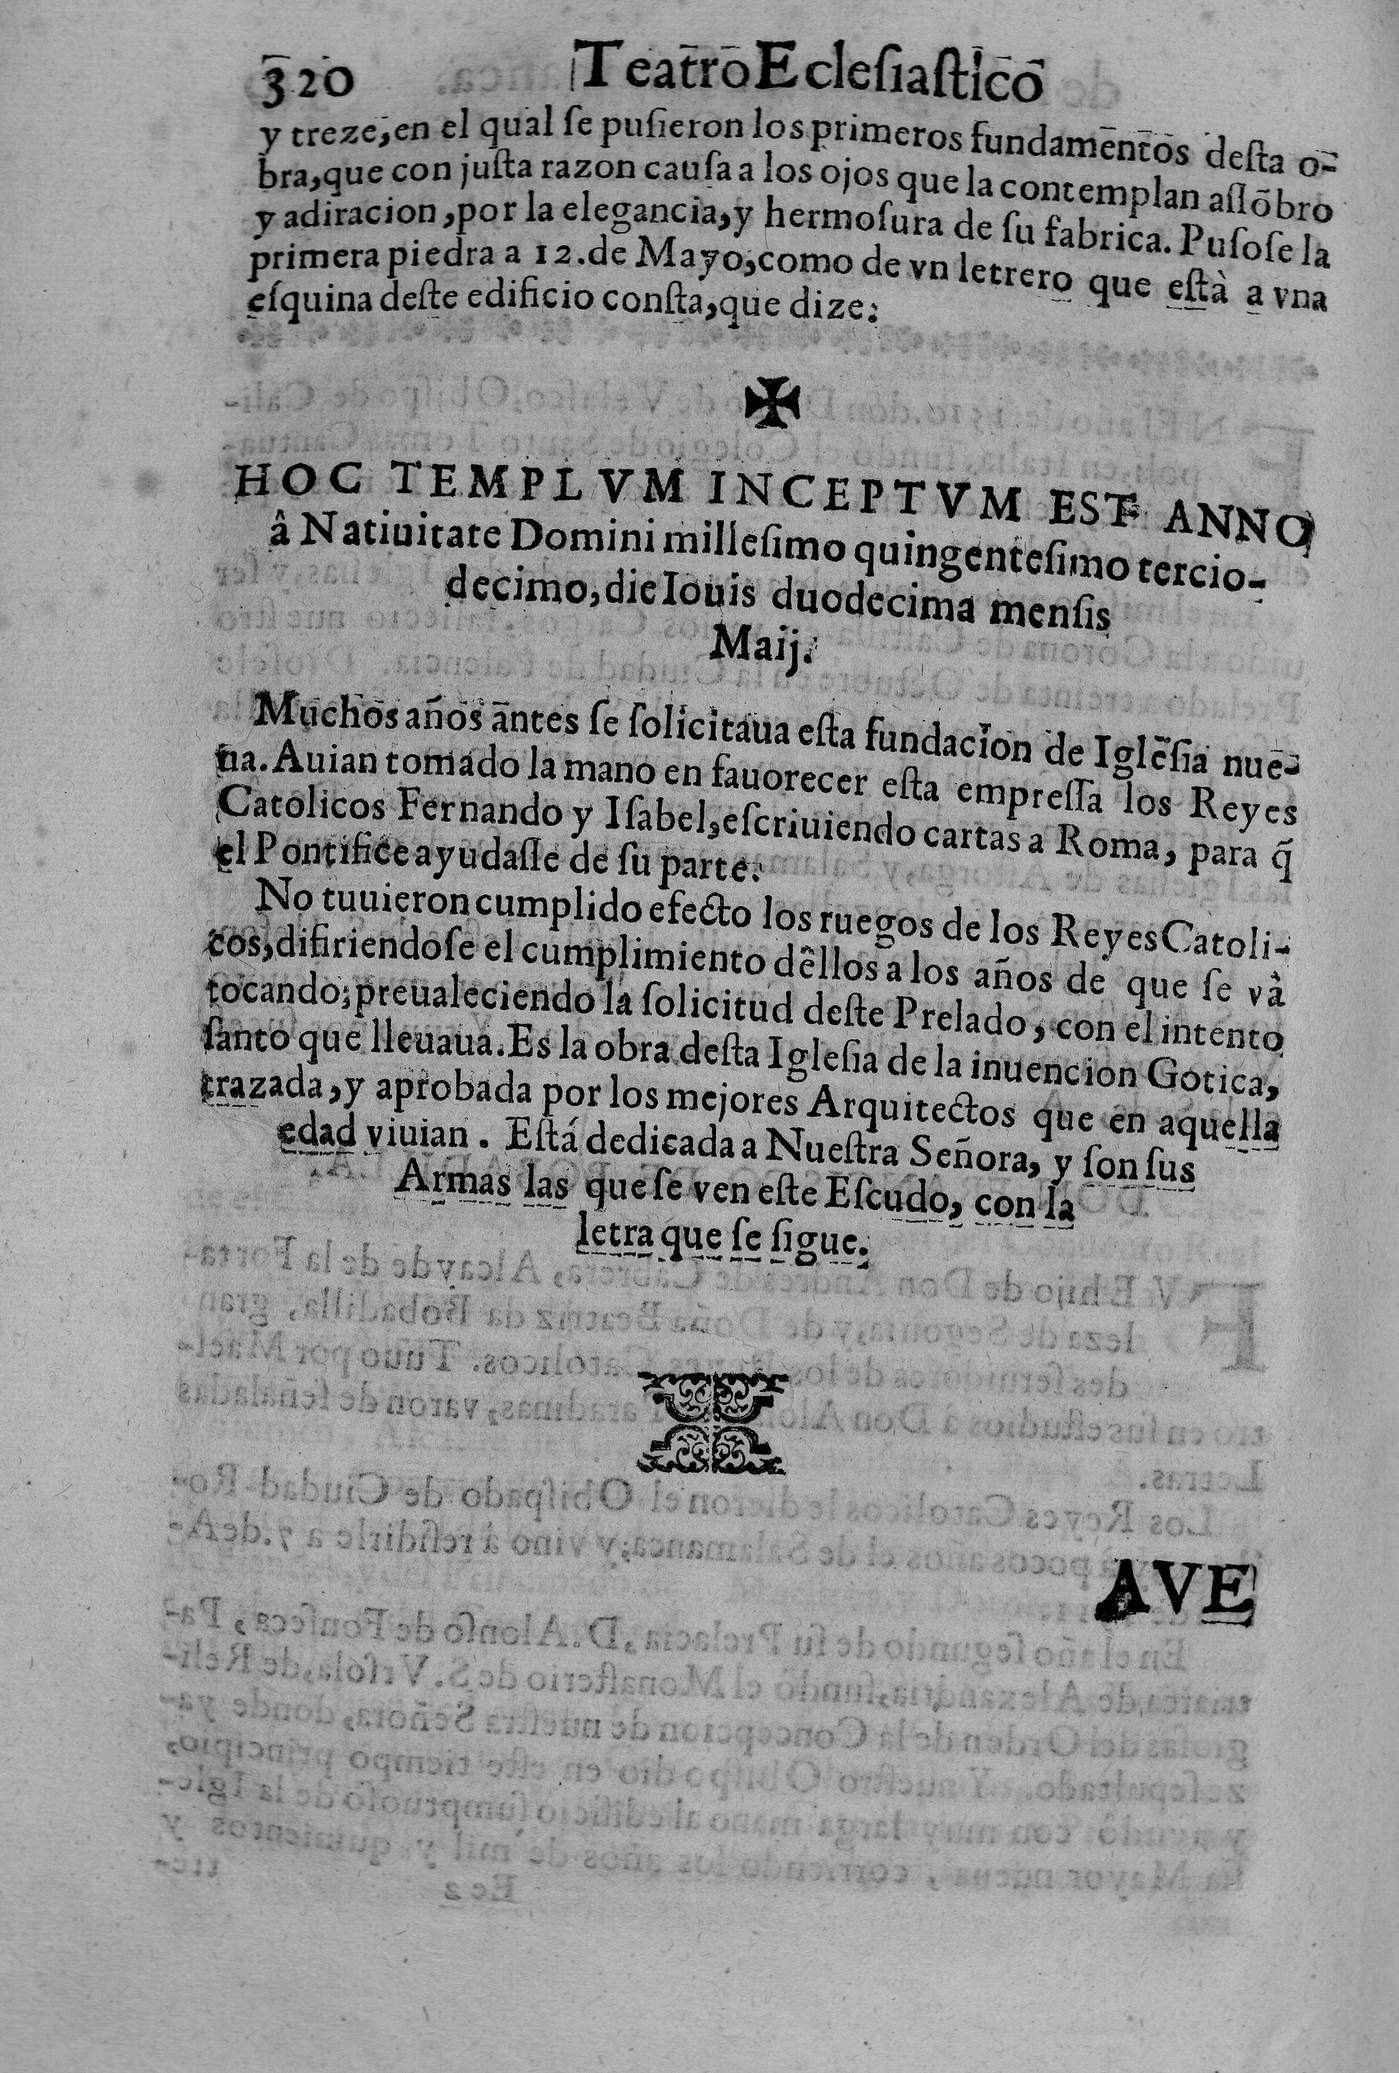 320 Teatro Eclesiastico
y treze, en el qual se pusieron los primeros fundamentos desta o-
bra, que con justa razon causa a los ojos que la contemplan assõbro
y adiracion, por la elegancia, y hermosura de su fabrica. Pusose la
primera piedra a 12. de Mayo, como de vn letrero que està a vna
esquina deste edificio consta, que dize:
✠
HOC TEMPLVM INCEPTVM EST ANNO
â Natiuitate Domini millesimo quingentesimo tercio-
decimo, die Iouis duodecima mensis
Maij.
Muchos años antes se solicitaua esta fundacion de Iglesia nue-
ua. Auian tomado la mano en fauorecer esta empressa los Reyes
Catolicos Fernando y Isabel, escriuiendo cartas a Roma, para q̃
el Pontifice ayudasse de su parte.
No tuuieron cumplido efecto los ruegos de los Reyes Catoli-
cos, difiriendose el cumplimiento dellos a los años de que se và
tocando; preualeciendo la solicitud deste Prelado, con el intento
santo que lleuaua. Es la obra desta Iglesia de la inuencion Gotica,
trazada, y aprobada por los mejores Arquitectos que en aquella
edad viuian. Está dedicada a Nuestra Señora, y son sus
Armas las que se ven este Escudo, con la
letra que se sigue.
AVE